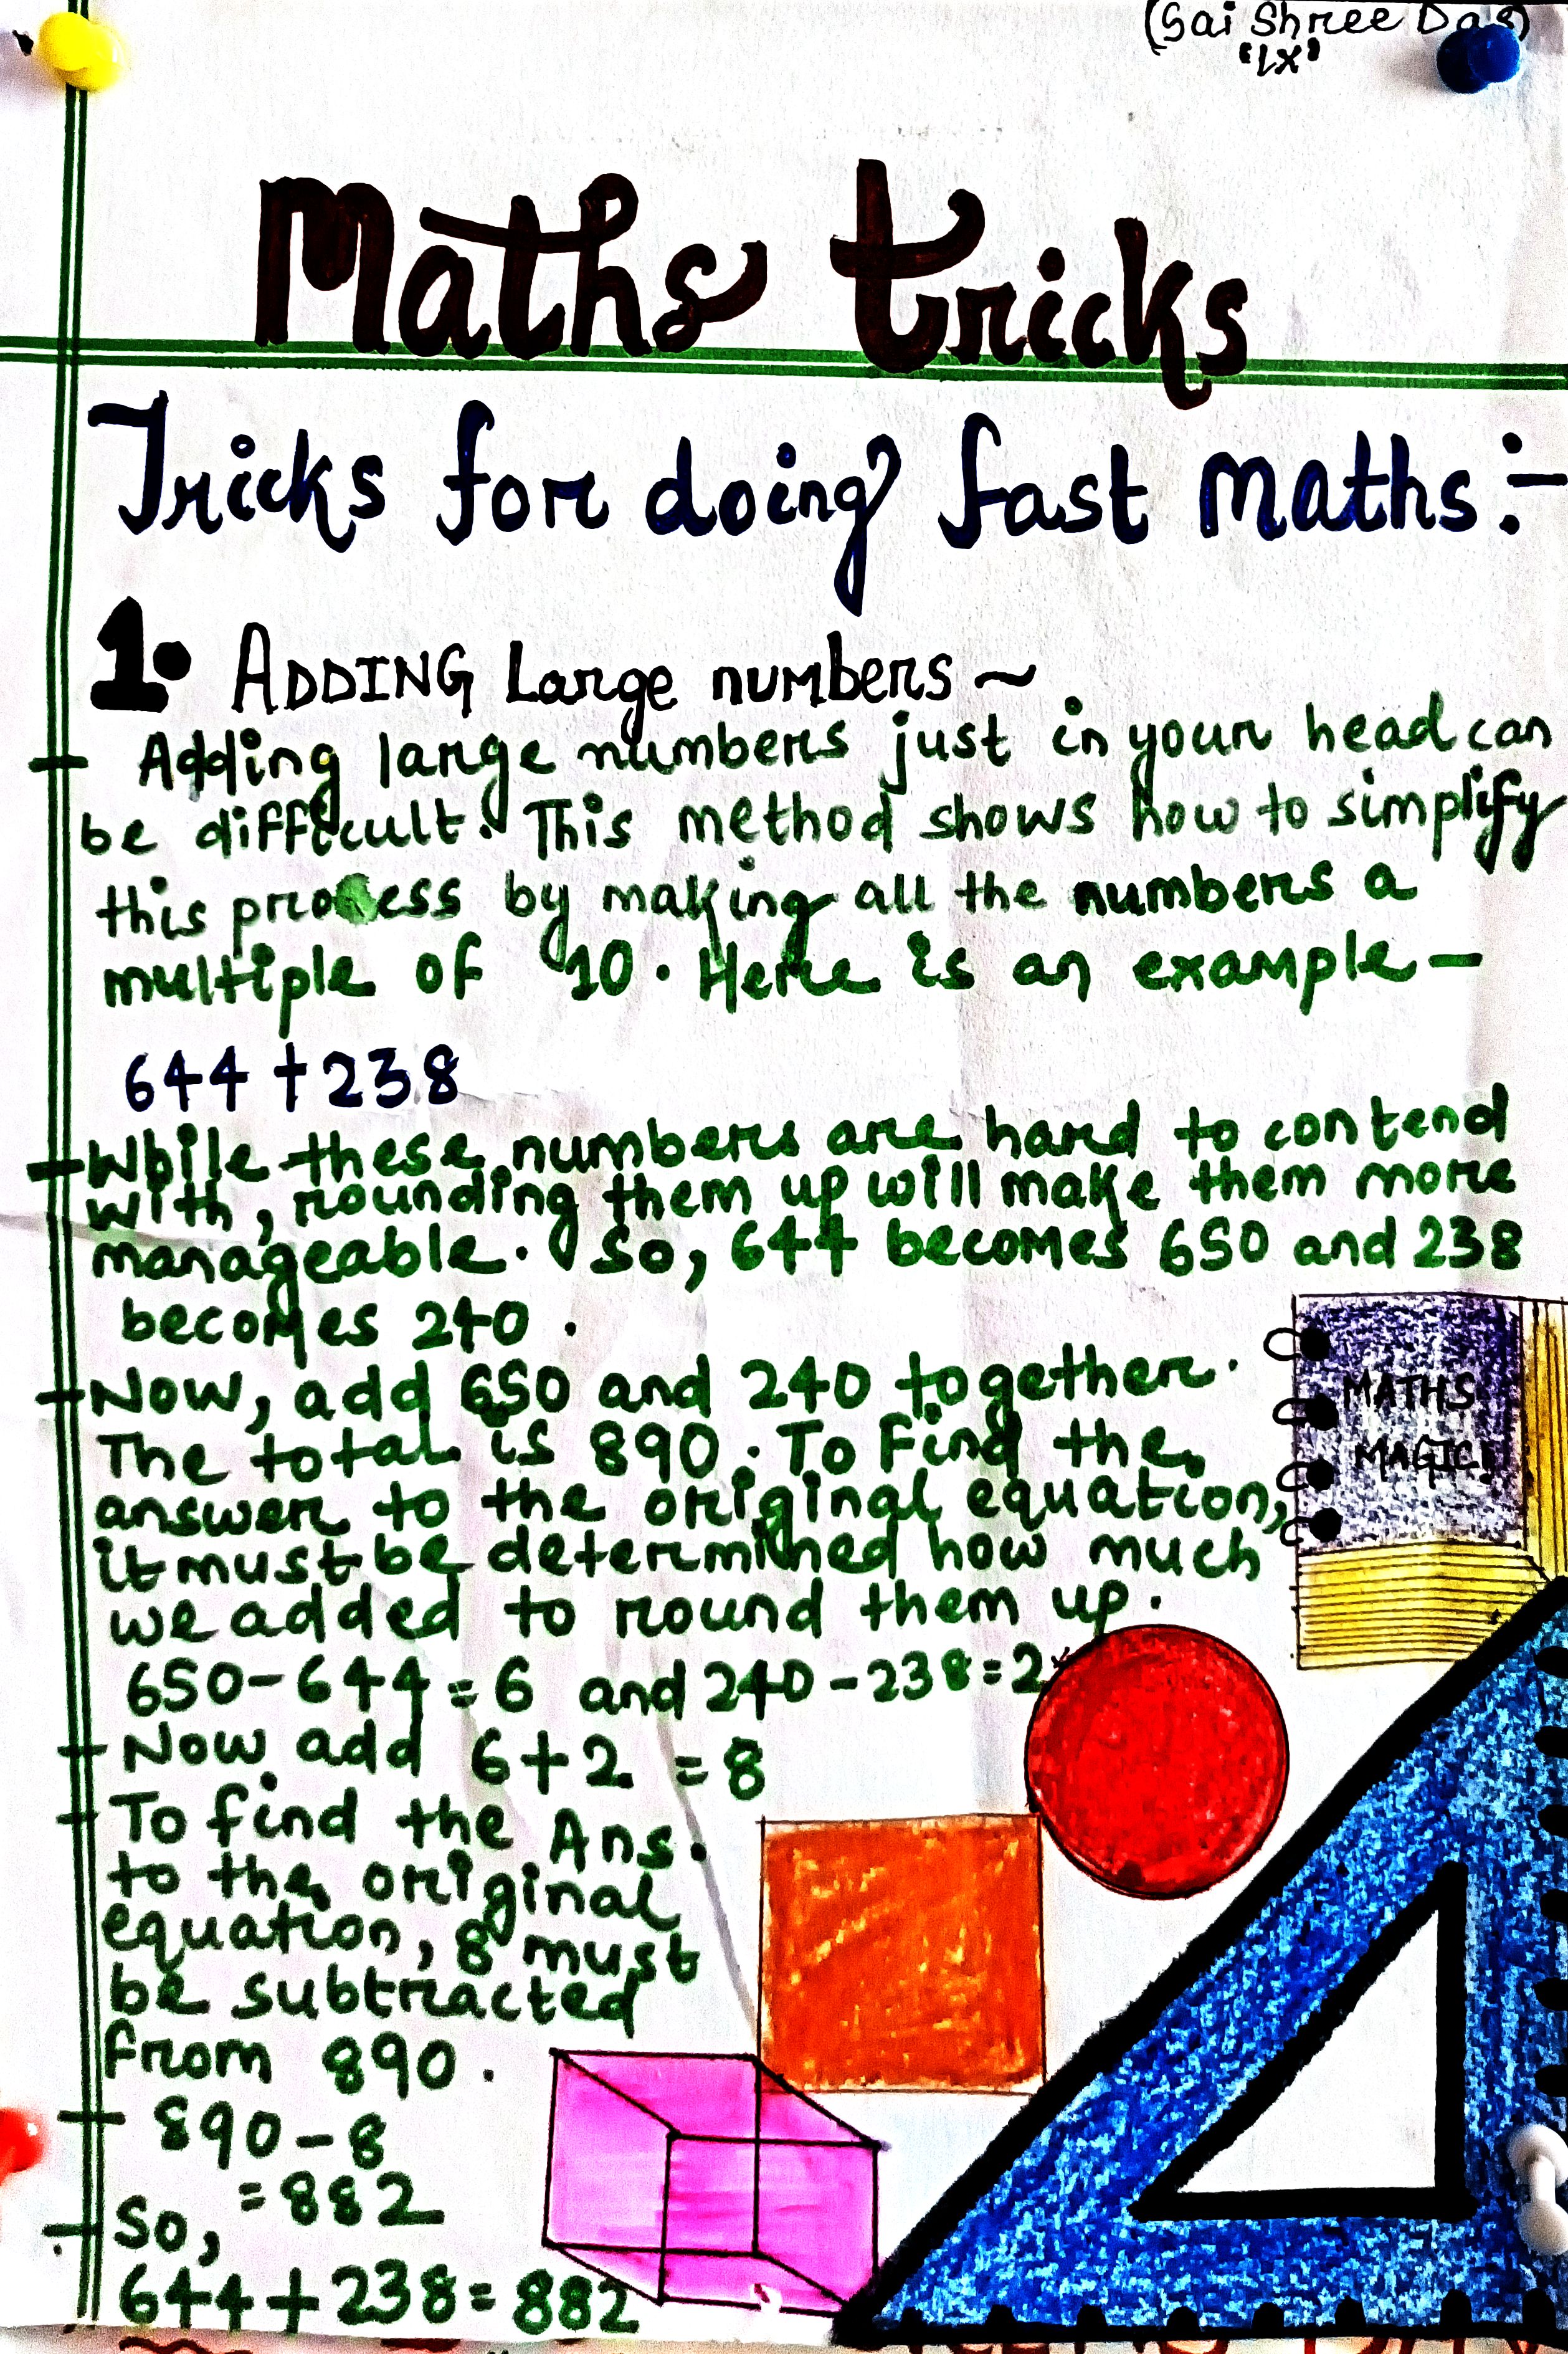 (Sai Shree Das)
"IX"
Maths tricks
Tricks for doing fast maths :-
1. ADDING Large numbers ~
Adding large numbers just in your head can
be difficult. This method shows how to simplify
this process by making all the numbers a
multiple of 10. Here is an example -
644 + 238
While these numbers are hard to contend
with, rounding them up will make them more
manageable. So, 644 becomes 650 and 238
becomes 240.
Now, add 650 and 240 together.
The total is 890. To find the
answer to the original equation,
it must be determined how much
we added to round them up.
650 - 644 = 6 and 240 - 238 = 2
Now add 6 + 2 = 8
To find the Ans.
to the original
equation, 8 must
be subtracted
from 890.
890 - 8
= 882
So,
644 + 238 = 882
MATHS
MAGIC!